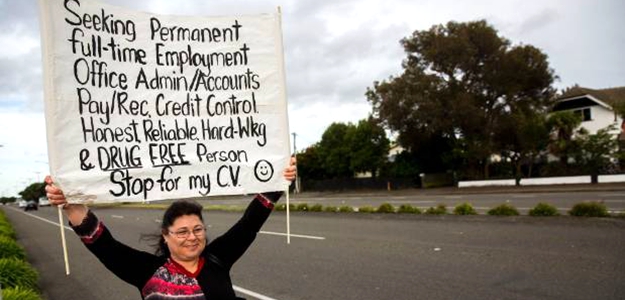 Seeking Permanent
full-time Employment
Office Admin/Accounts
Pay/Rec, Credit Control
Honest, Reliable, Hard-Wkg
& DRUG FREE Person
Stop for my C.V.